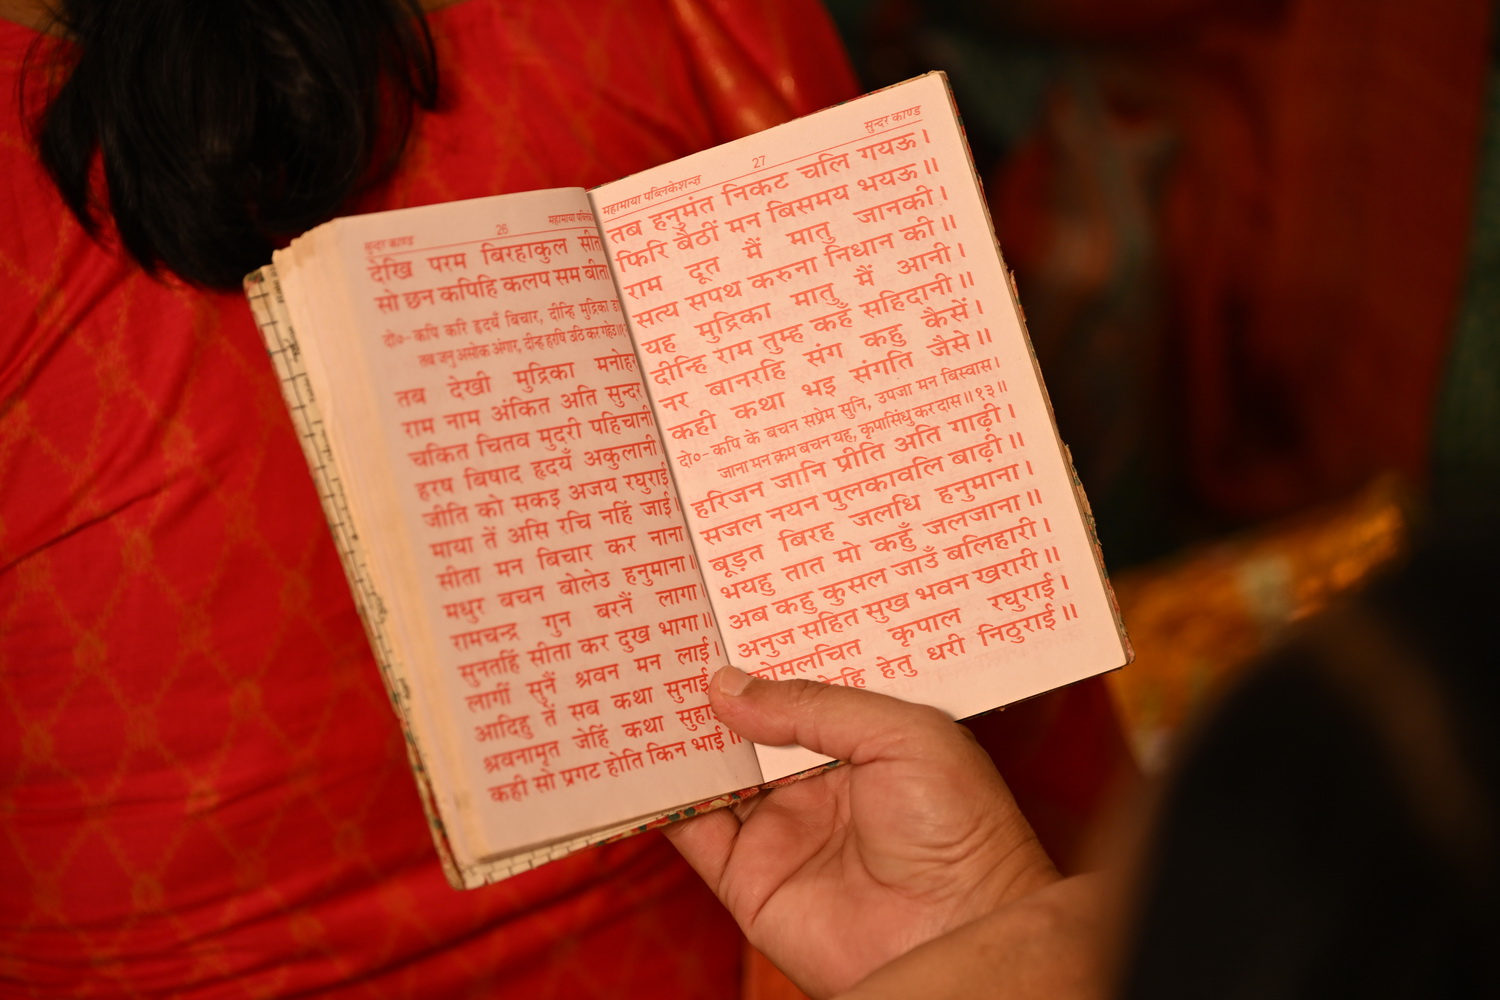 सुन्दर काण्ड 26 महामाया
देखि परम बिरहाकुल सीता
सो छन कपिहि कलप सम बीता
दो०– कपि करि हृदयँ बिचार, दीन्हि मुद्रिका
तब जनु असोक अंगार, दीन्ह हरषि उठि कर गहेउ॥
तब देखी मुद्रिका मनोहर
राम नाम अंकित अति सुन्दर
चकित चितव मुदरी पहिचानी
हरष बिषाद हृदयँ अकुलानी
जीति को सकइ अजय रघुराई
माया तें असि रचि नहिं जाई।
सीता मन बिचार कर नाना
मधुर बचन बोलेउ हनुमाना।
रामचन्द्र गुन बरनैं लागा
सुनतहिं सीता कर दुख भागा॥
लागीं सुनैं श्रवन मन लाई।
आदिहु तें सब कथा सुनाई
श्रवनामृत जेहिं कथा सुहा
कही सो प्रगट होति किन भाई॥
महामाया पब्लिकेशन्स 27 सुन्दर काण्ड
तब हनुमंत निकट चलि गयऊ।
फिरि बैठीं मन बिसमय भयऊ॥
राम दूत मैं मातु जानकी।
सत्य सपथ करुना निधान की॥
यह मुद्रिका मातु मैं आनी।
दीन्हि राम तुम्ह कहँ सहिदानी॥
नर बानरहि संग कहु कैसें।
कही कथा भइ संगति जैसे॥
दो०– कपि के बचन सप्रेम सुनि, उपजा मन बिस्वास।
जाना मन क्रम बचन यह, कृपासिंधु कर दास॥१३॥
हरिजन जानि प्रीति अति गाढ़ी।
सजल नयन पुलकावलि बाढ़ी॥
बूड़त बिरह जलधि हनुमाना।
भयहु तात मो कहुँ जलजाना॥
अब कहु कुसल जाउँ बलिहारी।
अनुज सहित सुख भवन खरारी॥
कोमलचित कृपाल रघुराई।
हेतु धरी निठुराई॥